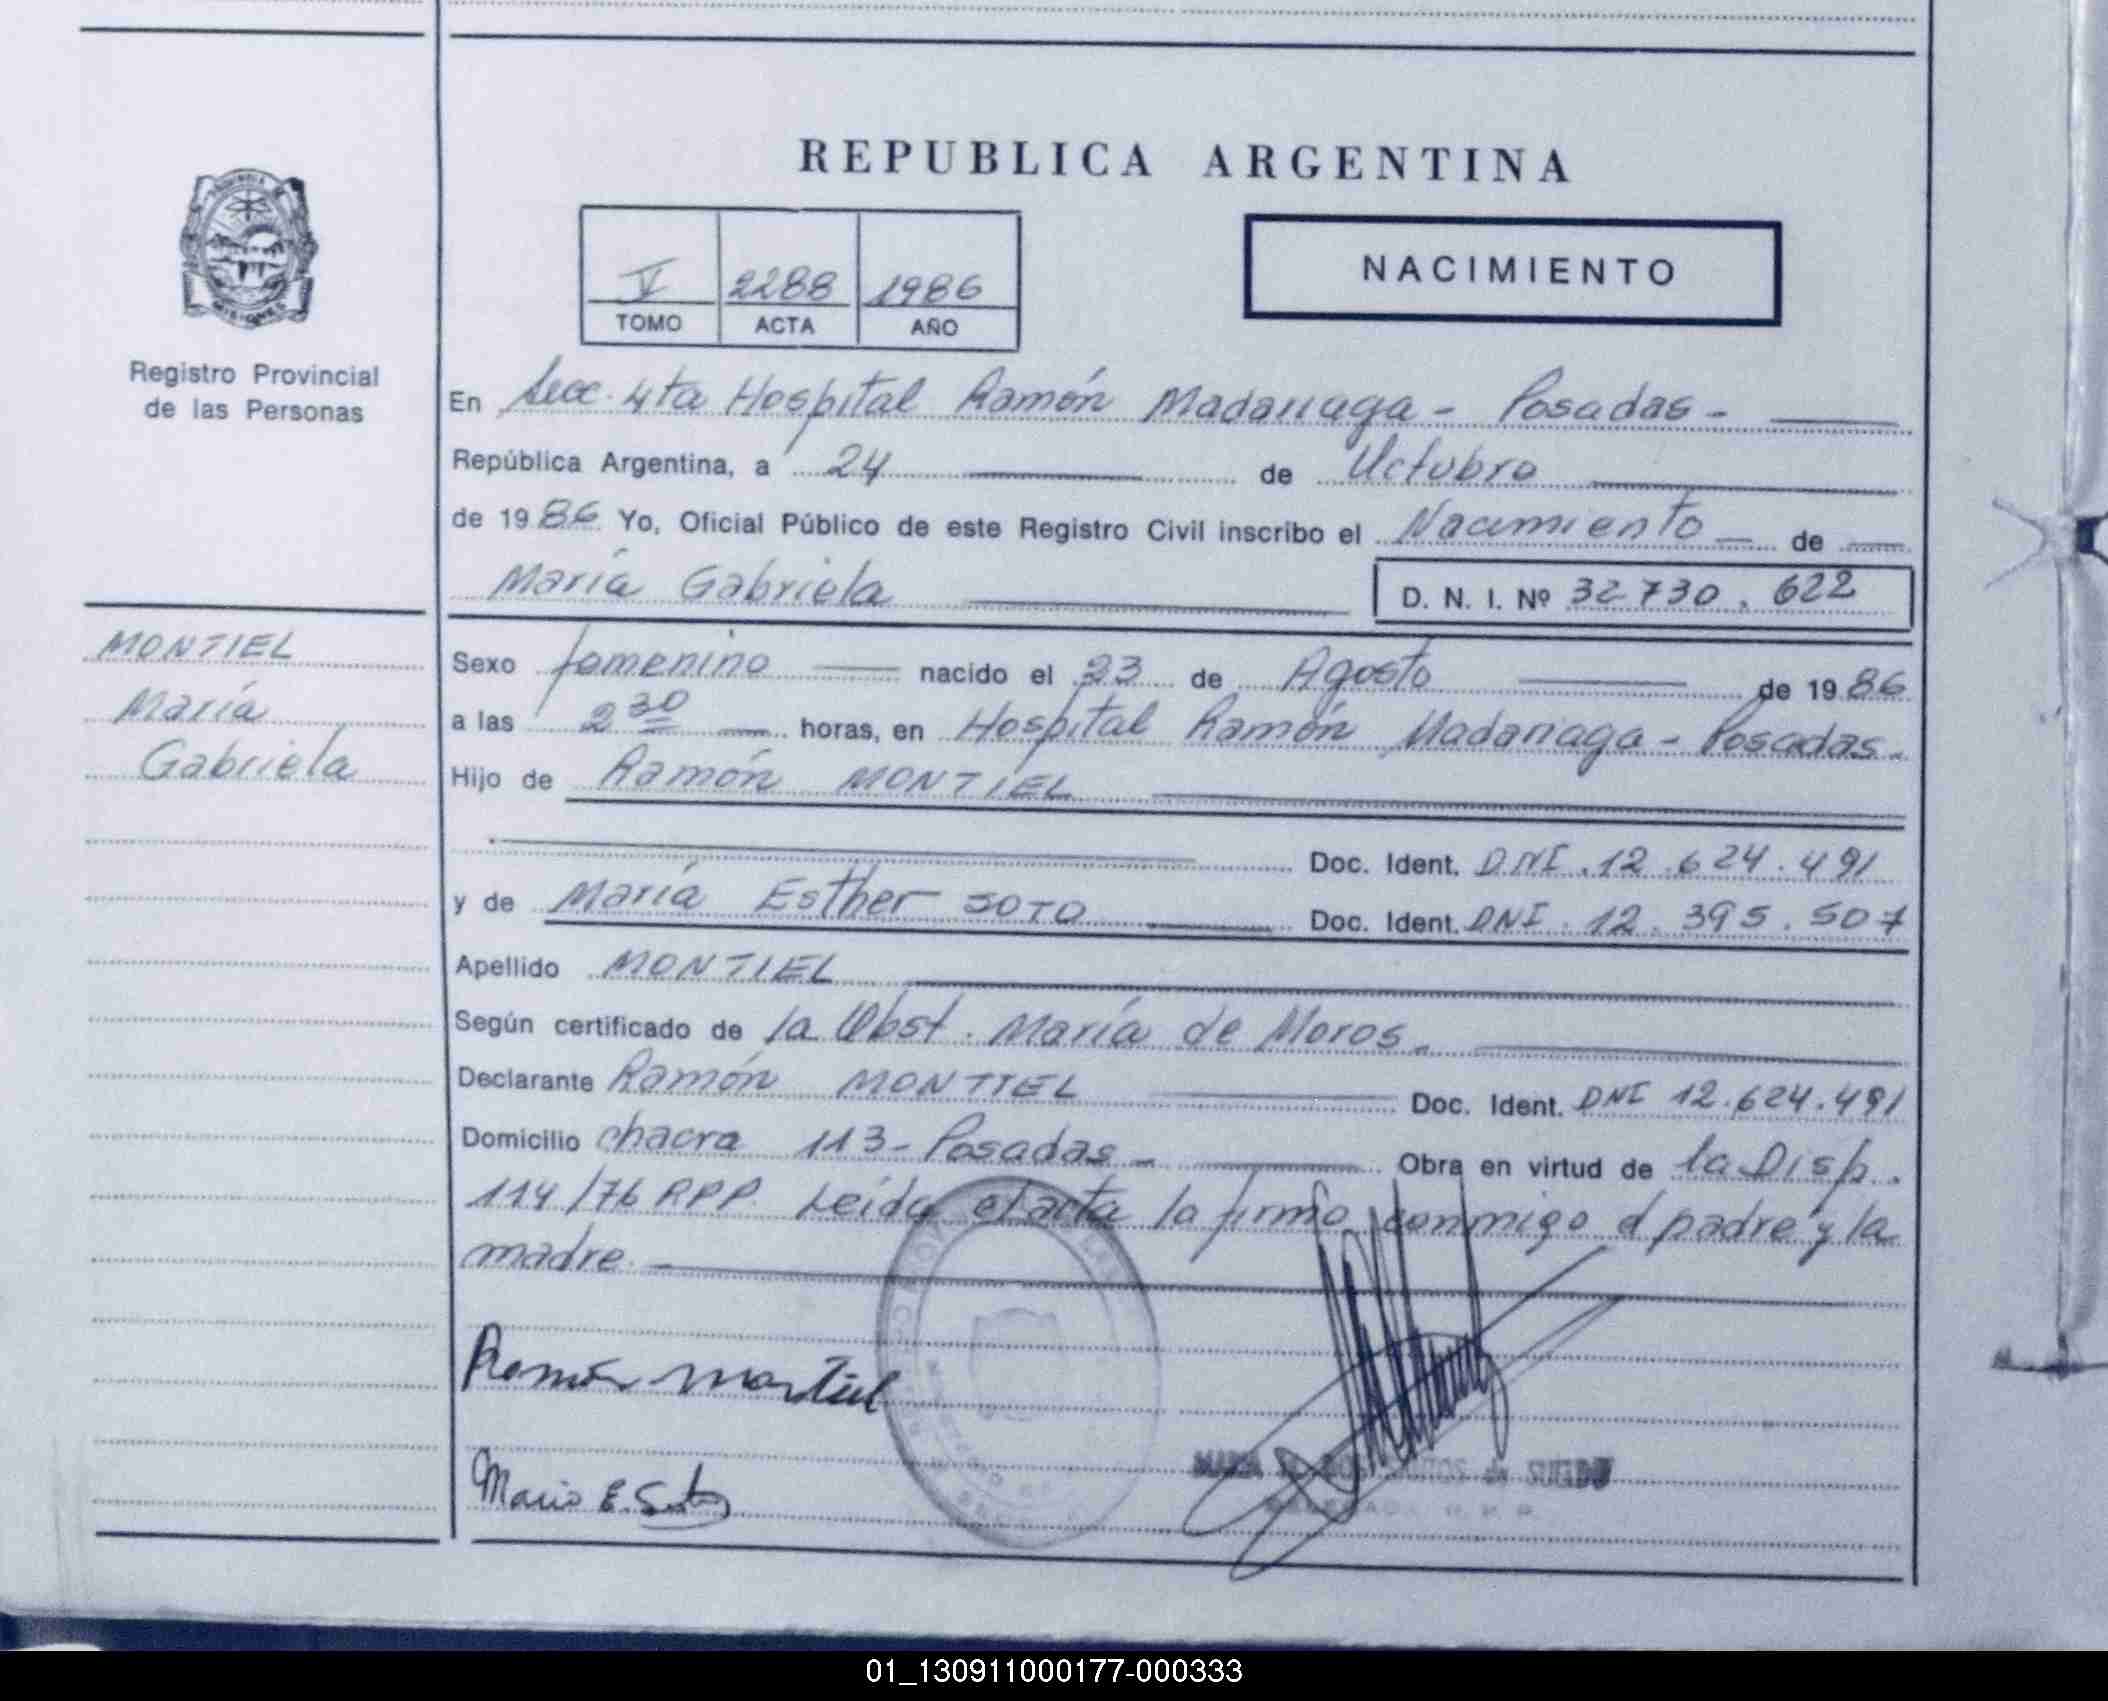 REPUBLICA ARGENTINA
V 2288 1986
TOMO ACTA AÑO
NACIMIENTO
Registro Provincial
de las Personas
MONTIEL
María
Gabriela
En Secc. 4ta Hospital Ramón Madariaga - Posadas -
República Argentina, a 24 de Octubre
de 1986 Yo, Oficial Público de este Registro Civil inscribo el Nacimiento de
María Gabriela D. N. I. Nº 32730.622
Sexo femenino nacido el 23 de Agosto de 1986
a las 2 30 horas, en Hospital Ramón Madariaga - Posadas -
Hijo de Ramón MONTIEL
Doc. Ident. DNI. 12.624.491
y de María Esther SOTO Doc. Ident. DNI 12.395.507
Apellido MONTIEL
Según certificado de la Obst. María de Moros -
Declarante Ramón MONTIEL Doc. Ident. DNI 12.624.491
Domicilio chacra 113 - Posadas - Obra en virtud de la Disp.
114/76 RPP. Leída el acta la firma conmigo el padre y la
madre.
Ramón Montiel
María E. Soto
MARIA de
01_130911000177-000333